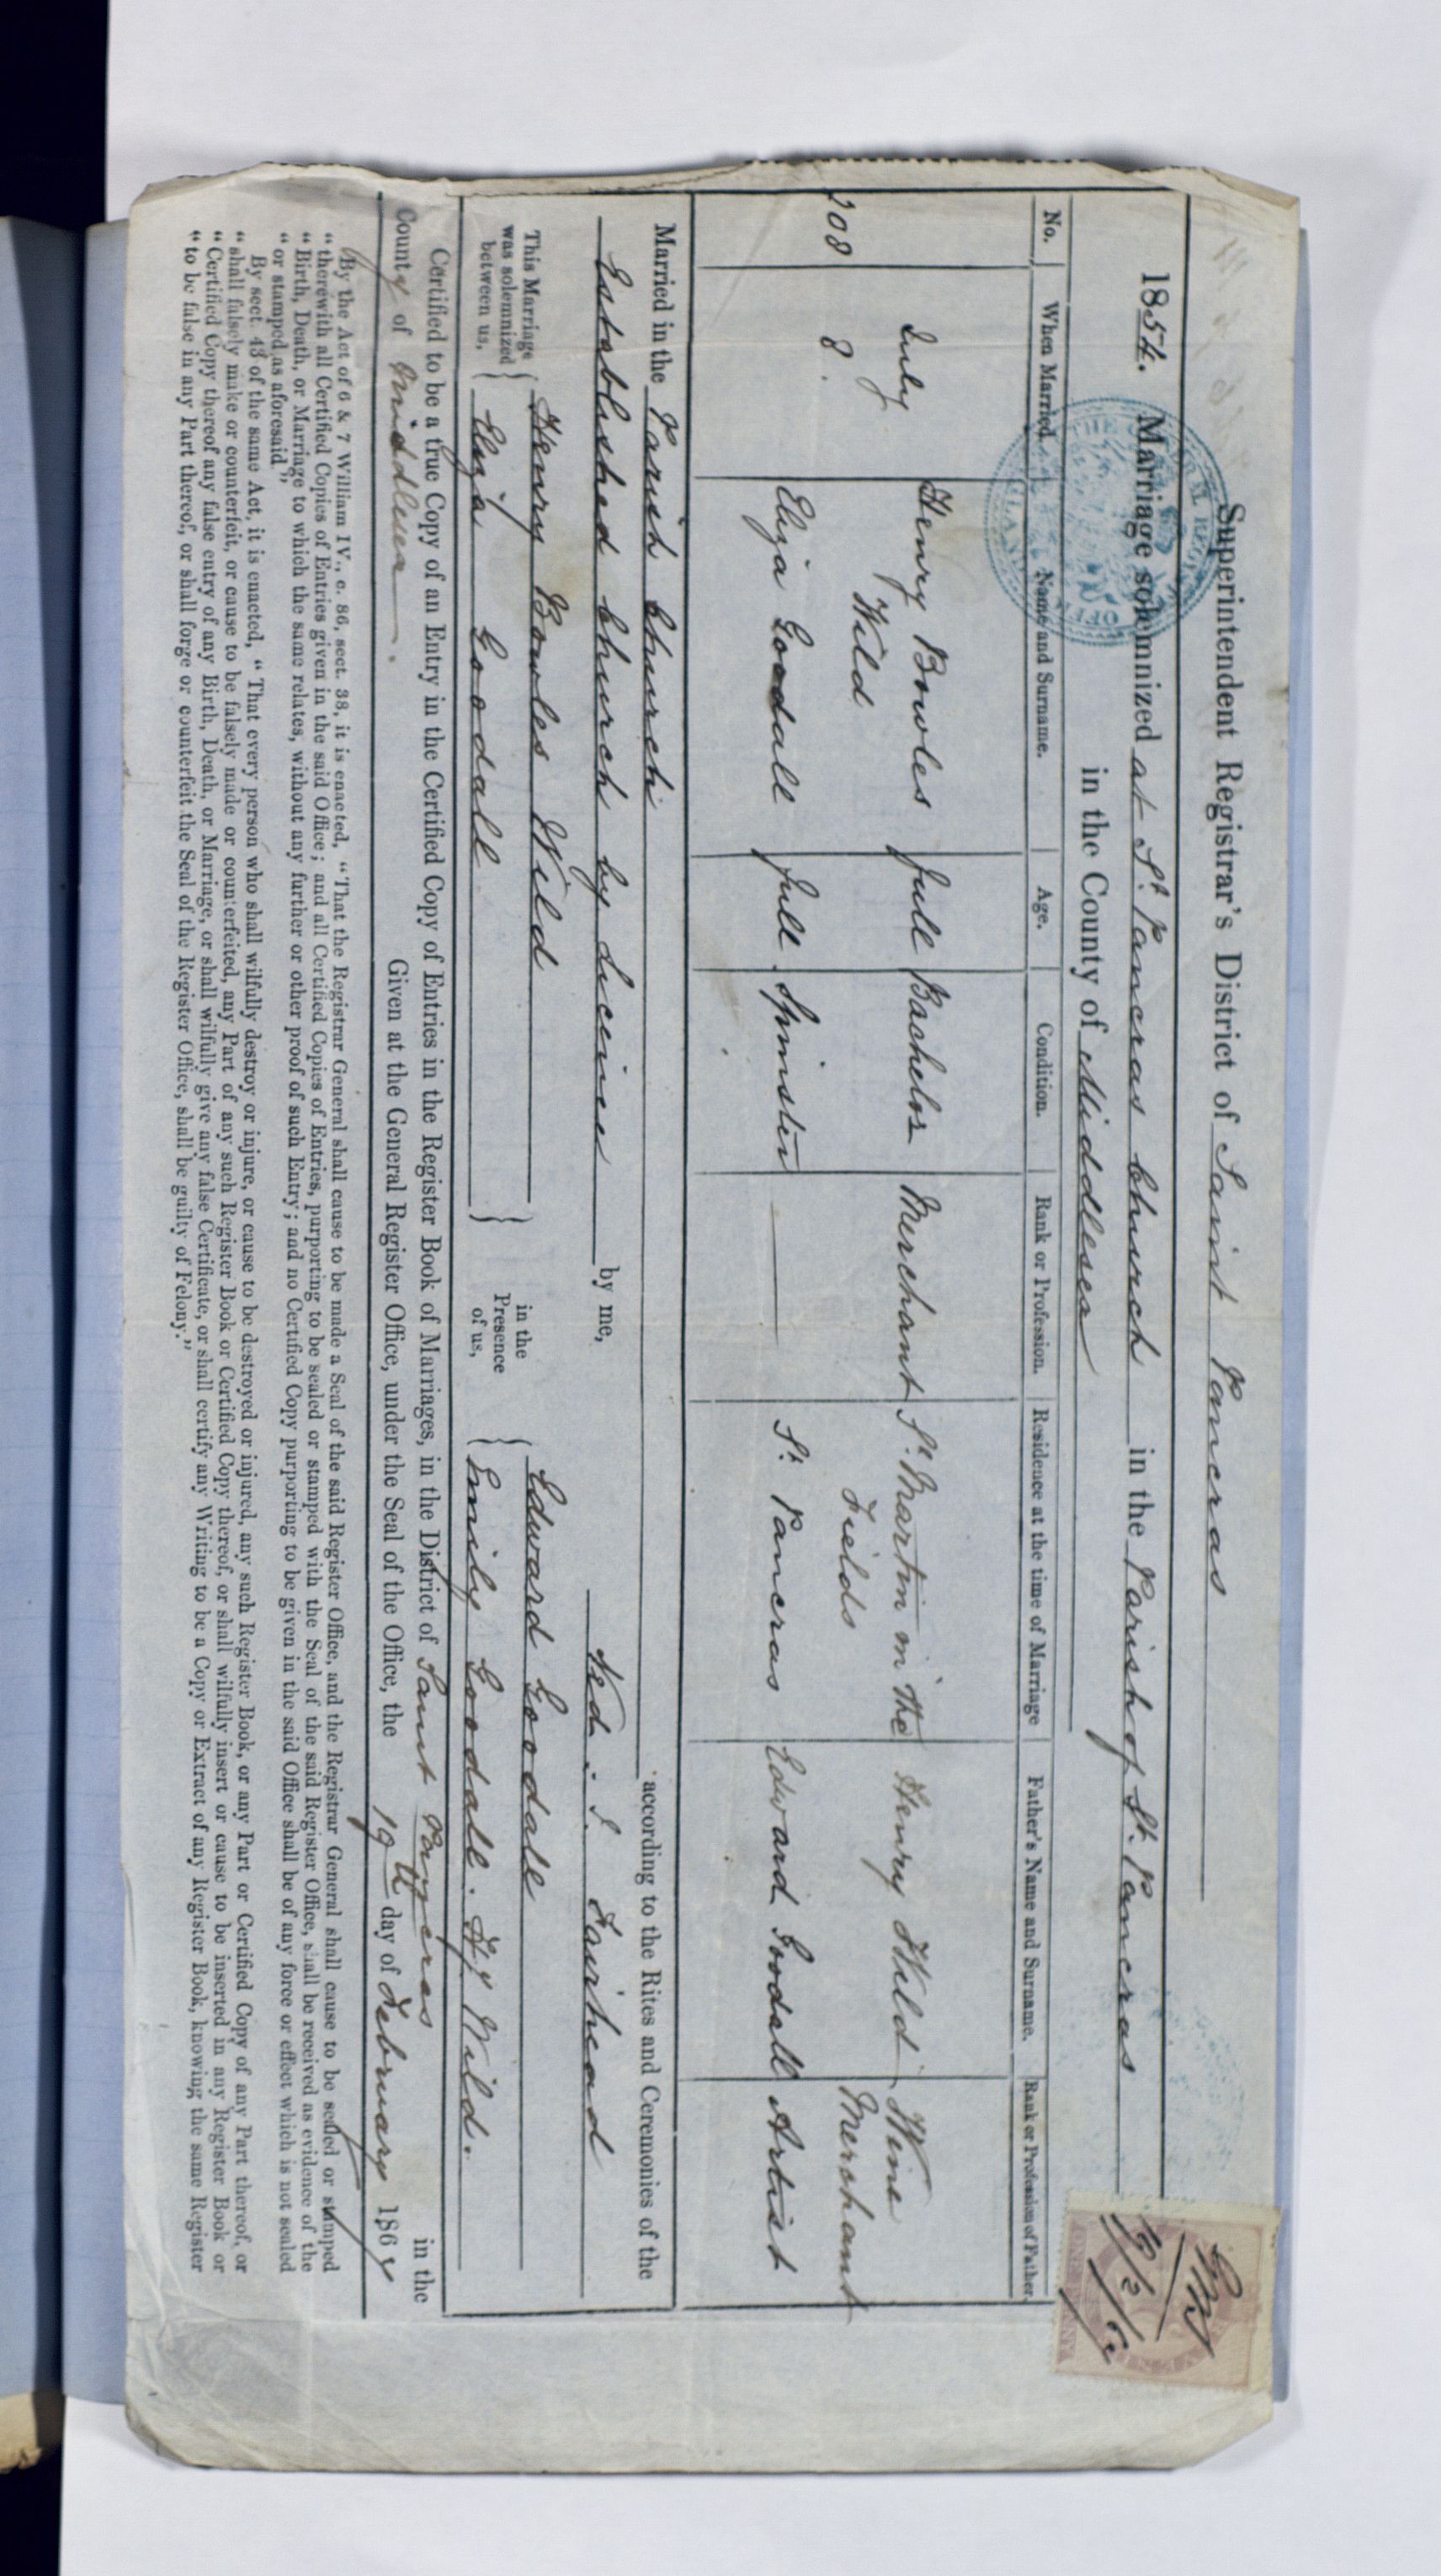 Superintendent Registrar's District of Saint Pancras
1854. Marriage solemnized at St. Pancras Church in the Parish of St. Pancras
in the County of Middlesex
No. When Married. Name and Surname. Age. Condition. Rank or Profession. Residence at the time of Marriage Father's Name and Surname. Rank or Profession of Father.
208 July 8. Henry Bowles Wild full Bachelor Merchant St. Martin in the Fields Henry Wild Wine Merchant
Eliza Goodall full Spinster — St. Pancras Edward Goodall Artist
Married in the Parish Church according to the Rites and Ceremonies of the
Established Church by Licence by me, Fairhead
This Marriage was solemnized between us, Henry Bowles Wild in the Presence of us, Edward Goodall
Eliza Goodall Emily Goodall. Hy Wild.
Certified to be a true Copy of an Entry in the Certified Copy of Entries in the Register Book of Marriages, in the District of Saint Pancras in the
County of Middlesex. Given at the General Register Office, under the Seal of the Office, the 19th day of February 186
By the Act of 6 & 7 William IV., c. 86, sect. 38, it is enacted, "That the Registrar General shall cause to be made a Seal of the said Register Office, and the Registrar General shall cause to be sealed or stamped
"therewith all Certified Copies of Entries given in the said Office; and all Certified Copies of Entries, purporting to be sealed or stamped with the Seal of the said Register Office, shall be received as evidence of the
"Birth, Death, or Marriage to which the same relates, without any further or other proof of such Entry; and no Certified Copy purporting to be given in the said Office shall be of any force or effect which is not sealed
"or stamped as aforesaid."
By sect. 43 of the same Act, it is enacted, "That every person who shall wilfully destroy or injure, or cause to be destroyed or injured, any such Register Book, or any Part or Certified Copy of any Part thereof, or
"shall falsely make or counterfeit, or cause to be falsely made or counterfeited, any Part of any such Register Book or Certified Copy thereof, or shall wilfully insert or cause to be inserted in any Register Book or
"Certified Copy thereof any false entry of any Birth, Death, or Marriage, or shall wilfully give any false Certificate, or shall certify any Writing to be a Copy or Extract of any Register Book, knowing the same Register
"to be false in any Part thereof, or shall forge or counterfeit the Seal of the Register Office, shall be guilty of Felony."